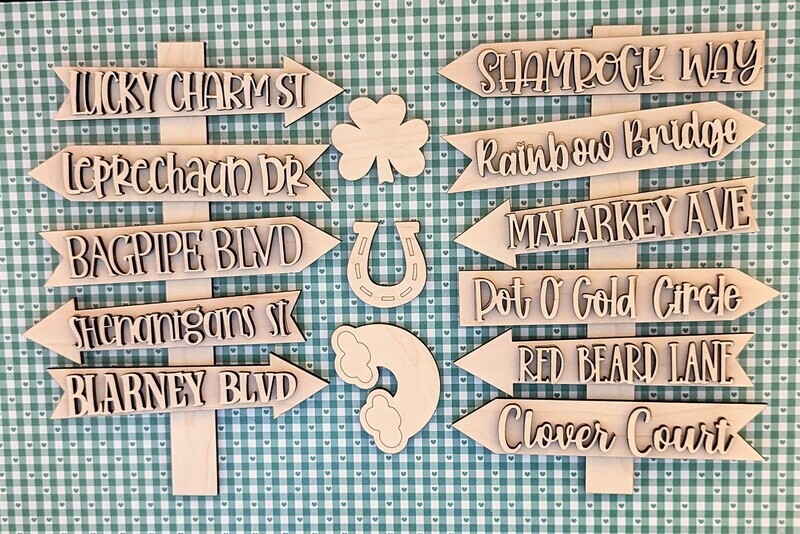 LUCKY CHARM ST
Leprechaun DR
BAGPIPE BLVD
Shenanigans St
BLARNEY BLVD
SHAMROCK WAY
Rainbow Bridge
MALARKEY AVE
Pot O' Gold Circle
RED BEARD LANE
Clover Court